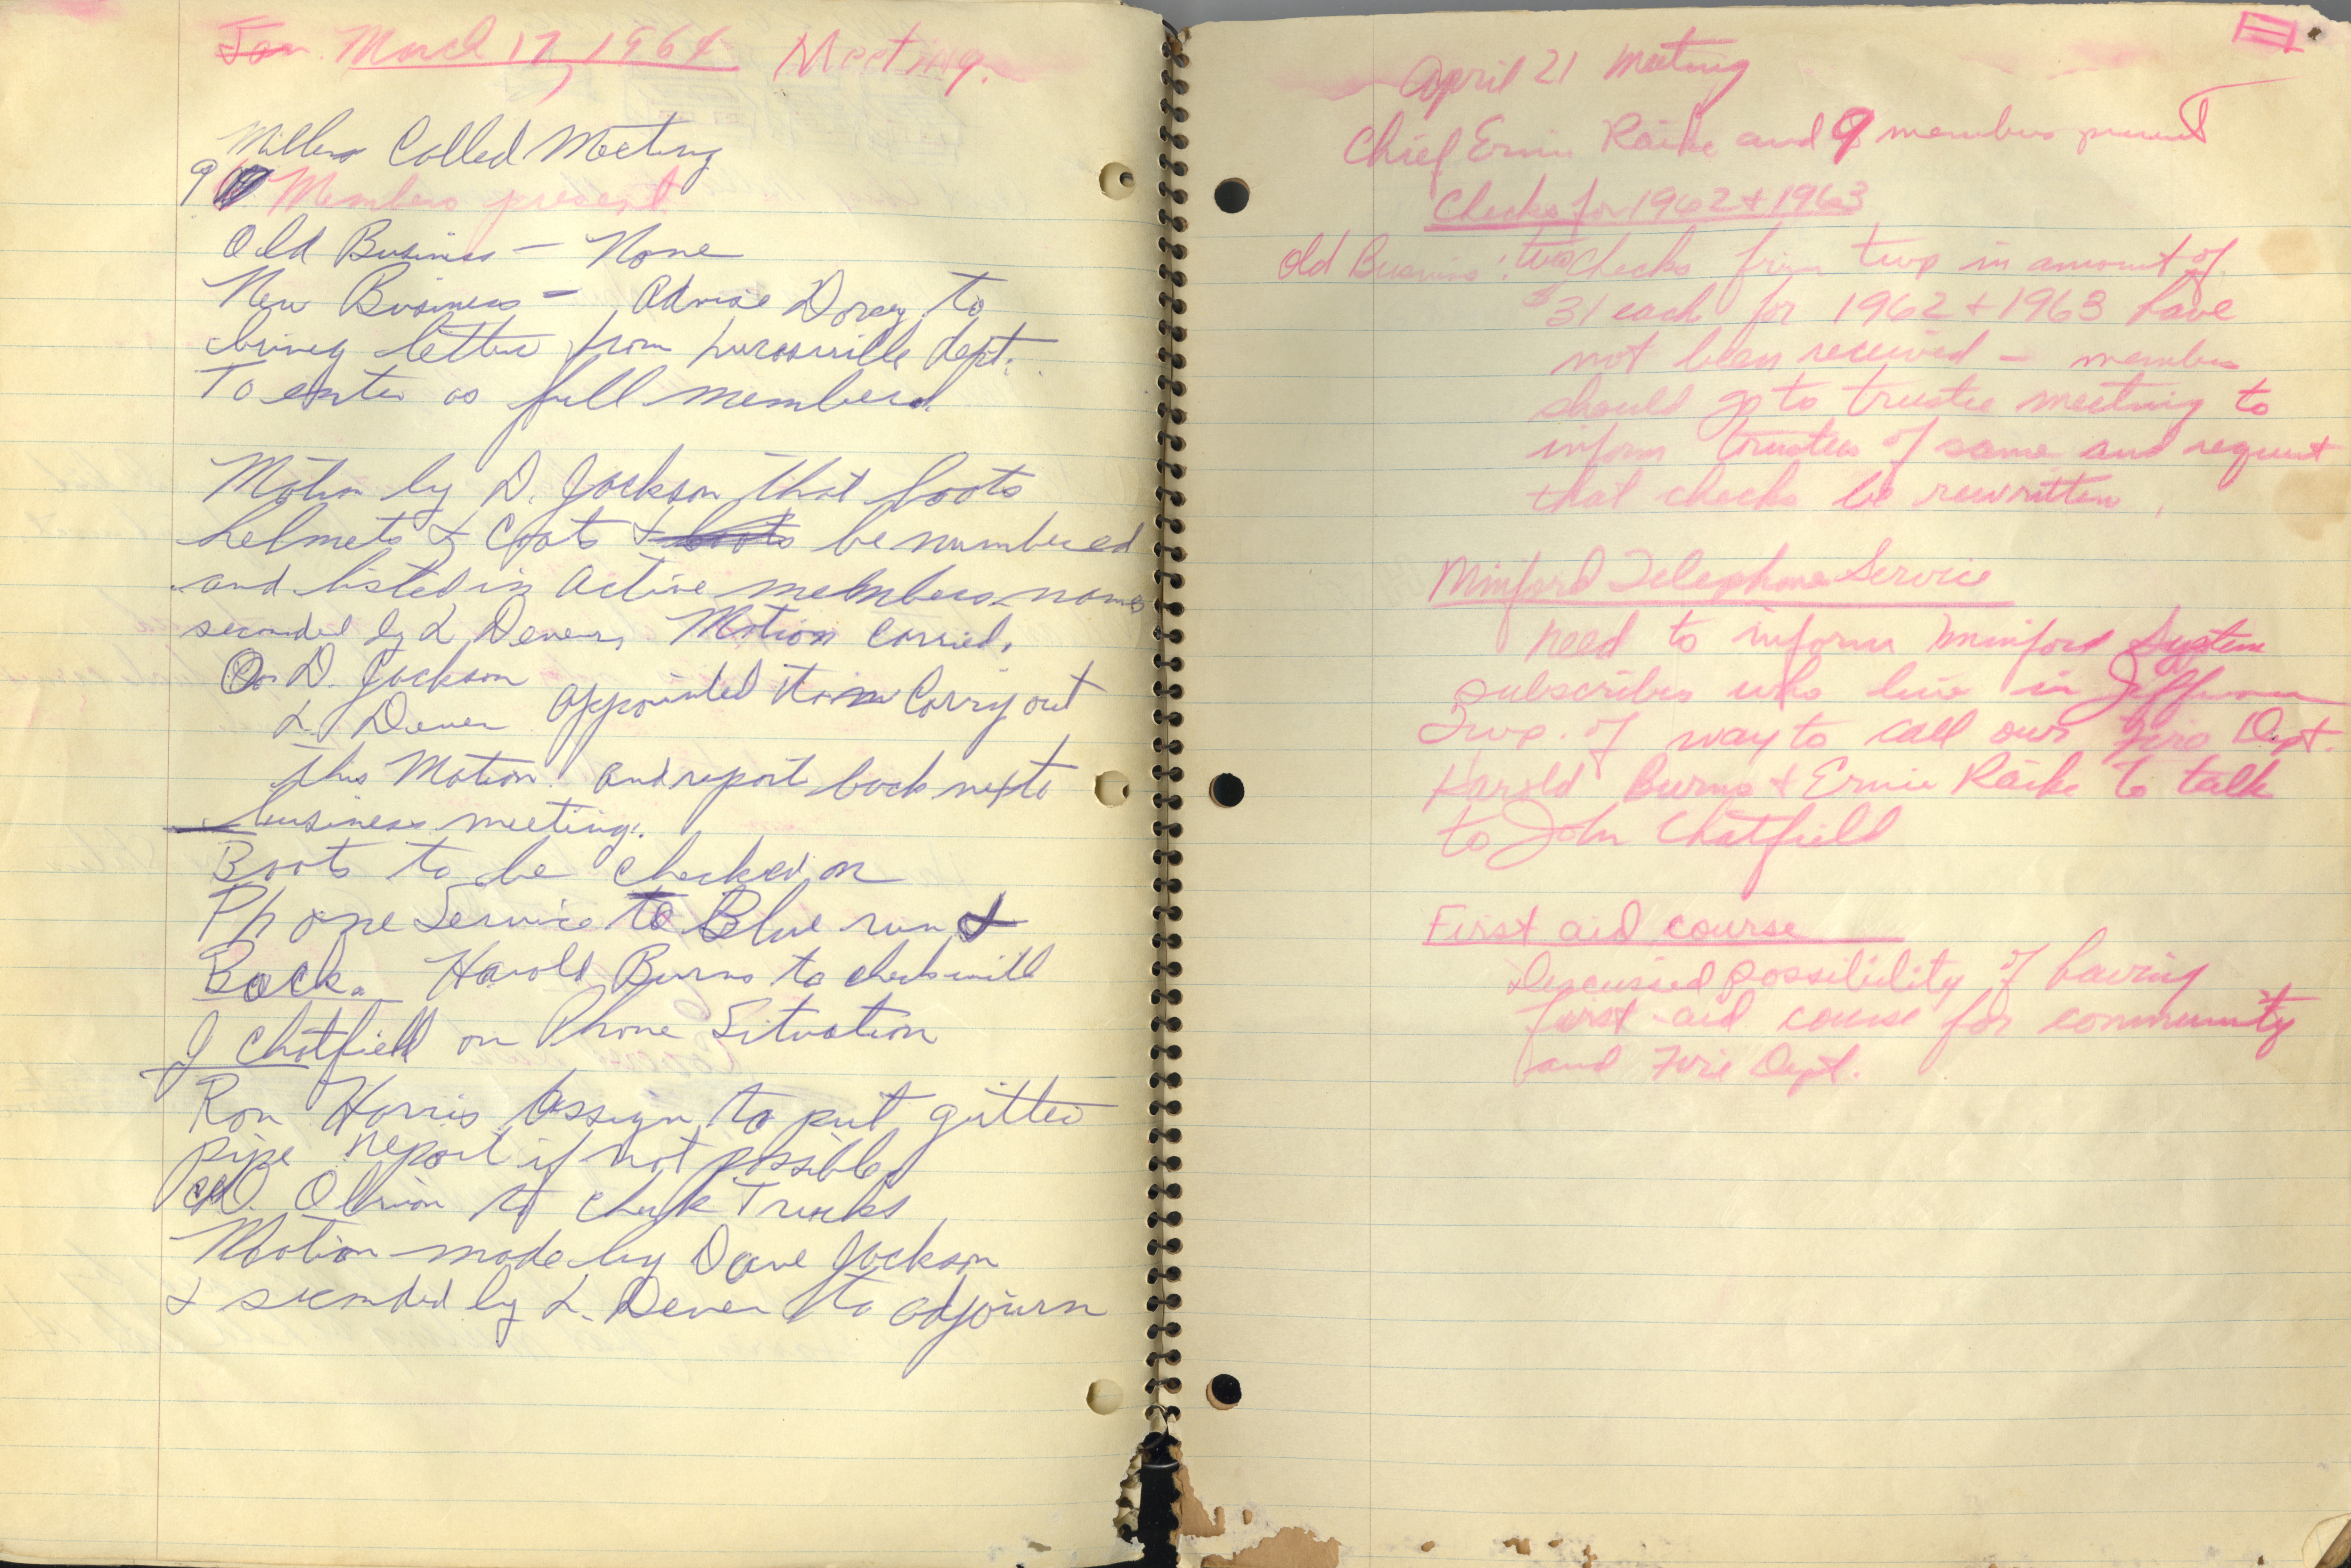 Jan. March 17, 1964 Meeting.
Millers Called Meeting
9 Members present
Old Business – None
New Business – Advise Dorey to
bring letter from Lucasville dept.
To enter as full member.
Motion by D. Jackson that boots
helmets & Coats & boots be numbered
and listed in active members names
seconded by L Dever, Motion Carried.
D. Jackson
L. Dever appointed to Carry out
this Motion. and report back next
business meeting.
Boots to be checked on
Phone Service to Blue run &
Back. Harold Burns to check with
J Chatfield on Phone Situation
Ron Harris Assign to put gutter
pipe report if not possible
O Brion to check Trucks
Motion made by Dave Jackson
& seconded by L. Dever to adjourn
April 21 Meeting
Chief Ernie Raike and 9 members present
Checks for 1962 & 1963
Old Business: two checks from twp in amount of
$31 each for 1962 & 1963 have
not been received – members
should go to trustee meeting to
inform trustees of same and request
that checks be rewritten.
Minford Telephone Service
need to inform Minford System
subscribers who live in Jefferson
Twp. of way to call our Fire Dept.
Harold Burns & Ernie Raike to talk
to John Chatfield
First aid course
Discussed possibility of having
first-aid course for community
and Fire Dept.